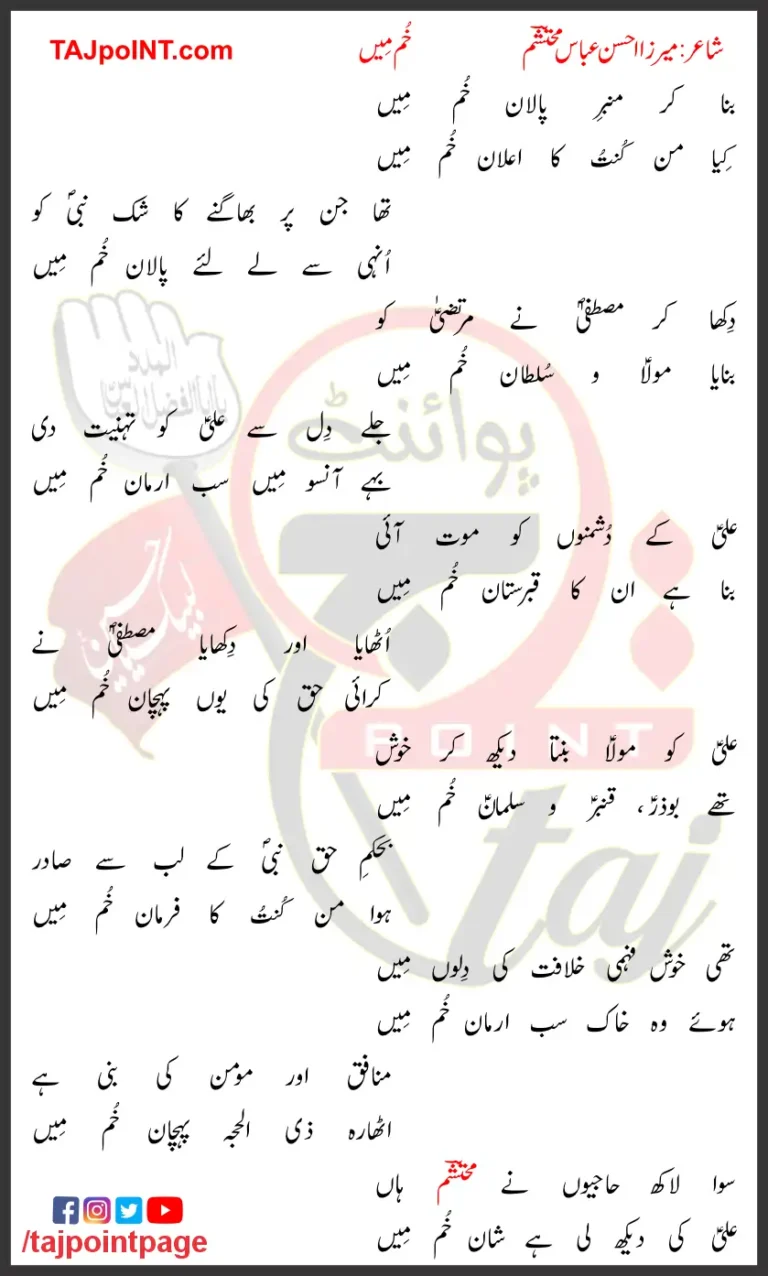 TAJpoINT.com
شاعر: میرزا احسن عباس محتشمؔ
خُم مِیں
بنا کر منبرِ پالان خُم مِیں
کِیا من کُنتُ کا اعلان خُم مِیں
تھا جن پر بھاگنے کا شک نبیؐ کو
اُنہی سے لے لئے پالان خُم مِیں
دِکھا کر مصطفیٰؐ نے مرتضیٰؑ کو
بنایا مولاؑ و سُلطان خُم مِیں
جلے دِل سے علیؑ کو تہنیت دی
بہے آنسو مِیں سب ارمان خُم مِیں
علیؑ کے دُشمنوں کو موت آئی
بنا ہے ان کا قبرستان خُم مِیں
اُٹھایا اور دِکھایا مصطفیٰؐ نے
کرائی حق کی یوں پہچان خُم مِیں
علیؑ کو مولاؑ بنتا دیکھ کر خوش
تھے بوذرؑ، قنبرؑ و سلمانؑ خُم مِیں
بحکمِ حق نبیؐ کے لب سے صادر
ہوا من کُنتُ کا فرمان خُم مِیں
تھی خوش فہمی خلافت کی دِلوں مِیں
ہوئے وہ خاک سب ارمان خُم مِیں
منافق اور مؤمن کی بنی ہے
اٹھارہ ذی الحجہ پہچان خُم مِیں
سوا لاکھ حاجیوں نے محتشمؔ ہاں
علیؑ کی دیکھ لی ہے شان خُم مِیں
/tajpointpage
پوائنٹ
تاج
POINT
taj
لبیک یا حسین
المدد
یا ابا الفضل العباس